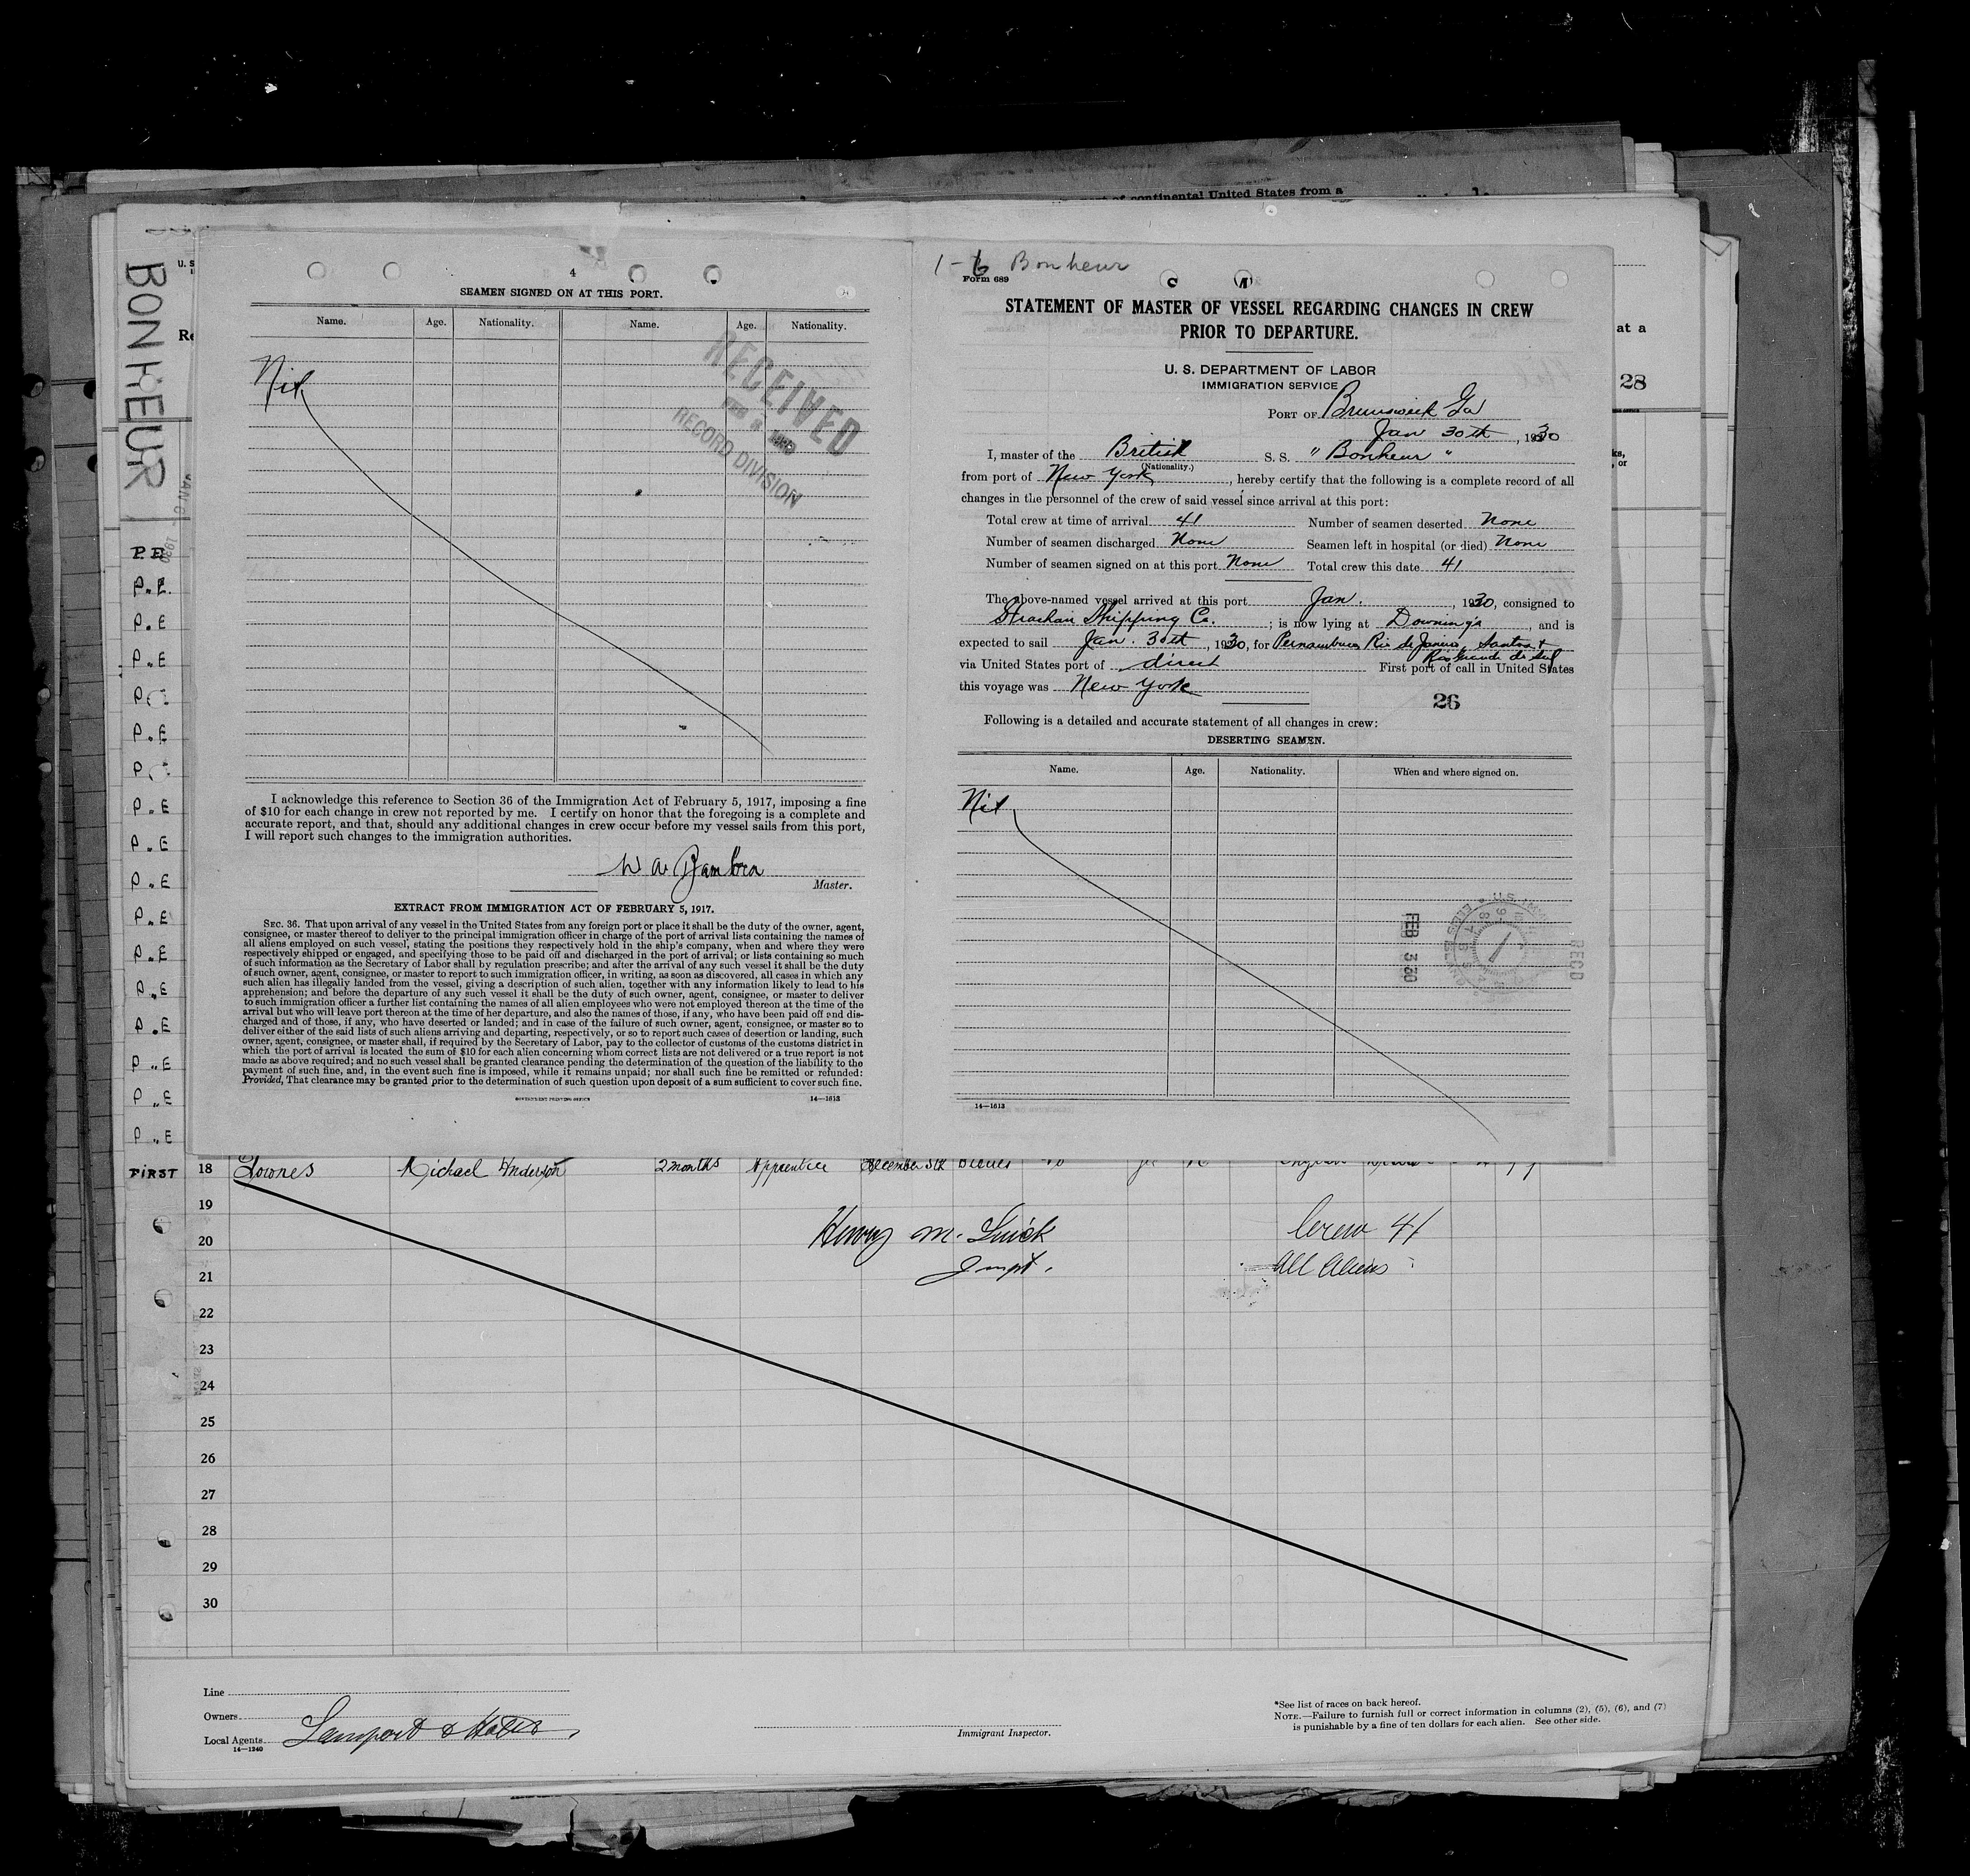 part of continental United States from a
BONHEUR
U. S
Re
at a
28
ks,
, or
JAN 6 - 1930
4
SEAMEN SIGNED ON AT THIS PORT.
Name. Age. Nationality. Name. Age. Nationality.
Nil
RECEIVED
RECORD DIVISION
I acknowledge this reference to Section 36 of the Immigration Act of February 5, 1917, imposing a fine
of $10 for each change in crew not reported by me. I certify on honor that the foregoing is a complete and
accurate report, and that, should any additional changes in crew occur before my vessel sails from this port,
I will report such changes to the immigration authorities.
W A
Master.
EXTRACT FROM IMMIGRATION ACT OF FEBRUARY 5, 1917.
SEC. 36. That upon arrival of any vessel in the United States from any foreign port or place it shall be the duty of the owner, agent,
consignee, or master thereof to deliver to the principal immigration officer in charge of the port of arrival lists containing the names of
all aliens employed on such vessel, stating the positions they respectively hold in the ship's company, when and where they were
respectively shipped or engaged, and specifying those to be paid off and discharged in the port of arrival; or lists containing so much
of such information as the Secretary of Labor shall by regulation prescribe; and after the arrival of any such vessel it shall be the duty
of such owner, agent, consignee, or master to report to such immigration officer, in writing, as soon as discovered, all cases in which any
such alien has illegally landed from the vessel, giving a description of such alien, together with any information likely to lead to his
apprehension; and before the departure of any such vessel it shall be the duty of such owner, agent, consignee, or master to deliver
to such immigration officer a further list containing the names of all alien employees who were not employed thereon at the time of the
arrival but who will leave port thereon at the time of her departure, and also the names of those, if any, who have been paid off and dis-
charged and of those, if any, who have deserted or landed; and in case of the failure of such owner, agent, consignee, or master so to
deliver either of the said lists of such aliens arriving and departing, respectively, or so to report such cases of desertion or landing, such
owner, agent, consignee, or master shall, if required by the Secretary of Labor, pay to the collector of customs of the customs district in
which the port of arrival is located the sum of $10 for each alien concerning whom correct lists are not delivered or a true report is not
made as above required; and no such vessel shall be granted clearance pending the determination of the question of the liability to the
payment of such fine, and, in the event such fine is imposed, while it remains unpaid; nor shall such fine be remitted or refunded:
Provided, That clearance may be granted prior to the determination of such question upon deposit of a sum sufficient to cover such fine.
GOVERNMENT PRINTING OFFICE 14—1613
1-6 Bonheur
Form 689
STATEMENT OF MASTER OF VESSEL REGARDING CHANGES IN CREW
PRIOR TO DEPARTURE.
U. S. DEPARTMENT OF LABOR
IMMIGRATION SERVICE
PORT OF Brunswick Ga
Jan 30th, 1930
I, master of the British S. S. "Bonheur"
(Nationality.)
from port of New York, hereby certify that the following is a complete record of all
changes in the personnel of the crew of said vessel since arrival at this port:
Total crew at time of arrival 41 Number of seamen deserted None
Number of seamen discharged None Seamen left in hospital (or died) None
Number of seamen signed on at this port None Total crew this date 41
The above-named vessel arrived at this port Jan., 1930, consigned to
Strachan Shipping Co.; is now lying at Downing's, and is
expected to sail Jan. 30th, 1930, for Pernambuco Rio de Janeiro, Santos &
Rio Grande do Sul
via United States port of direct First port of call in United States
this voyage was New York
26
Following is a detailed and accurate statement of all changes in crew:
DESERTING SEAMEN.
Name. Age. Nationality. When and where signed on.
Nil
FEB 3 30
REC'D
14—1613
P.E
P.E.
P.E
P.E
P
P.E
P
P.E
P.E
P.E
P.E
P.E
P.E
P.E
P.E
P.E
P.E
FIRST 18 Downes Michael Anderson 2 months Apprentice December 5th
19
20
21
22
23
24
25
26
27
28
29
30
Henry M.
Inspt.
Crew 41
All Aliens
Line
Owners
Local Agents Lamport & Holt
14—1240
Immigrant Inspector.
*See list of races on back hereof.
NOTE.—Failure to furnish full or correct information in columns (2), (5), (6), and (7)
is punishable by a fine of ten dollars for each alien. See other side.